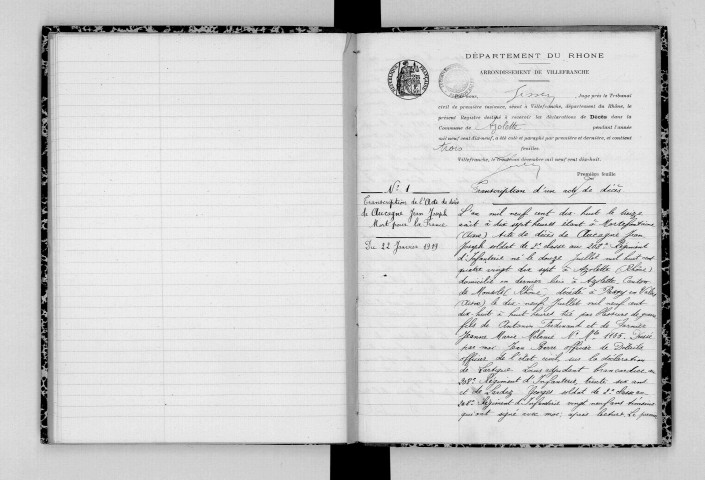 DÉPARTEMENT DU RHONE
ARRONDISSEMENT DE VILLEFRANCHE
Juge près le Tribunal
civil de première instance, séant à Villefranche, département du Rhône, le
présent Registre destiné à recevoir les déclarations de Décès dans la
Commune de Azolette pendant l'année
mil neuf cent dix-neuf, a été coté et paraphé par première et dernière, et contient
trois feuilles
Villefranche, le décembre mil neuf cent dix-huit.
Première feuille
N° 1
Transcription de l'Acte de décès
de Aucagne Jean Joseph
Mort pour la France
Du 22 Janvier 1919
Transcription d'un acte de décès
L'an mil neuf cent dix huit le treize
août à dix sept heures étant à Mortefontaine
(Aisne) Acte de décès de Aucagne Jean
Joseph soldat de 2e classe au Régiment
d'Infanterie né le douze Juillet mil huit cent
quatre vingt dix sept à Azolette (Rhône)
domicilié en dernier lieu à Azolette Canton
de Monsols (Rhône), décédé à
(Aisne) le dix-neuf Juillet mil neuf cent
dix-huit à huit heures tué par blessures de guerre
fils de Ferdinand et de
Jeanne Marie Melanie N° Mle 1155. Dressé
par moi Jean Pierre officier de Détails
officier de l'état civil, sur la déclaration
de Louis brancardier au
Régiment d'Infanterie trente six ans
et de Georges soldat de 2e classe au
Régiment d'Infanterie vingt neuf ans témoins
qui ont signé avec moi, après lecture. Le